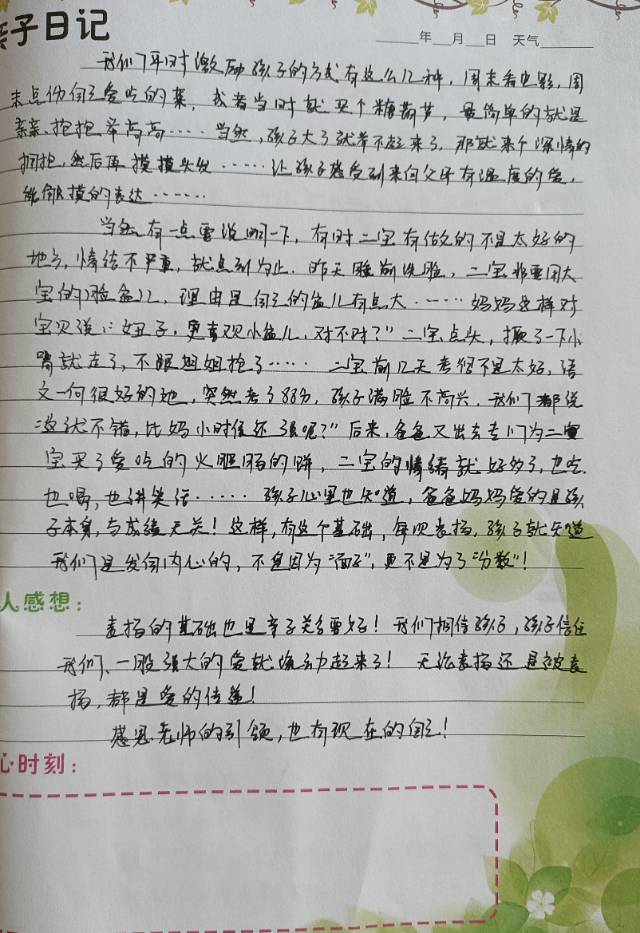 亲子日记
年 月 日 天气
我们平时激励孩子的方式有这么几种,周末看电影,周
末点份自己爱吃的菜,或者当时就买个糖葫芦,最简单的就是
亲亲.抱抱.举高高……当然,孩子大了就举不起来了,那就来个深情的
拥抱,然后再摸摸头发……让孩子感受到来自父母有温度的爱,
能触摸的表达……
当然有一点要说明一下,有时二宝有做的不是太好的
地方,情节不严重,就点到为止.昨天睡前洗脸,二宝非要用大
宝的脸盆儿,理由是自己的盆儿有点大……妈妈这样对
宝贝说:“妞子,更喜欢小盆儿,对不对?”二宝点头,撅了一下小
嘴就走了,不跟姐姐抢了……二宝前几天考得不是太好,语
文一向很好的她,突然考了88分,孩子满脸不高兴,我们都说
“这就不错,比妈小时候还强呢?”后来,爸爸又出去专门为二宝
宝买了爱吃的火腿肠的饼,二宝的情绪就好多了,也吃.
也喝,也讲笑话……孩子心里也知道,爸爸妈妈爱的是孩
子本身,与成绩无关!这样,有这个基础,每次表扬,孩子就知道
我们是发自内心的,不是因为“面子”,更不是为了“分数”!
人感想:
表扬的基础也是亲子关系要好!我们相信孩子,孩子信任
我们.一股强大的爱就流动起来了!无论表扬还是被表
扬,都是爱的传递!
感恩老师的引领,也有现在的自己!
心时刻: